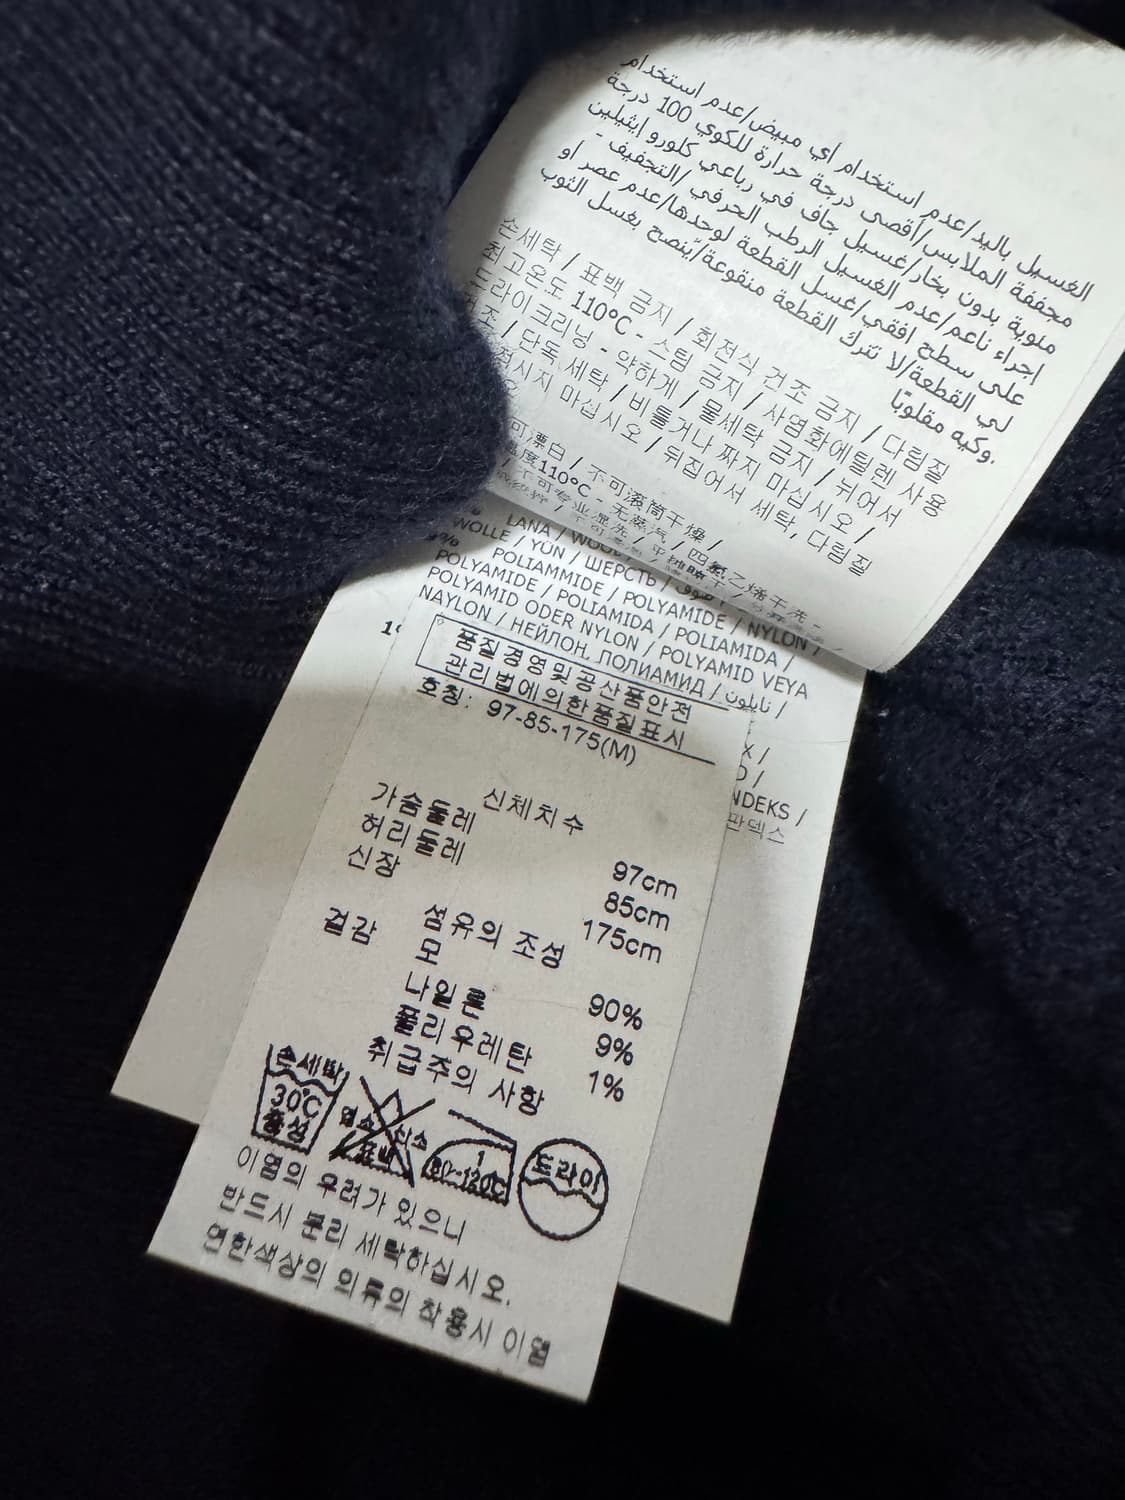 الغسيل باليد/عدم استخدام أي مبيض/عدم استخدام
مجففة الملابس/أقصى درجة حرارة للكوي 100 درجة
مئوية بدون بخار/غسيل جاف في رباعي كلورو إيثيلين
إجراء ناعم/عدم الغسيل الرطب الحرفي /التجفيف -
على سطح افقي/غسل القطعة لوحدها/عدم عصر او
لي القطعة/لا تترك القطعة منقوعة/يُنصح بغسل الثوب
وكيه مقلوبًا.
손세탁 / 표백 금지 / 회전식 건조 금지 / 다림질
최고온도 110°C - 스팀 금지 / 사염화에틸렌 사용
드라이크리닝 - 약하게 / 물세탁 금지 / 뉘어서
건조 / 단독 세탁 / 비틀거나 짜지 마십시오 /
마십시오 / 뒤집어서 세탁, 다림질
可漂白 / 不可滚筒干燥 /
温度110°C - 无蒸汽 / 四氯乙烯干洗 -
不可专业湿洗 /
LANA /
WOLLE / YÜN / ШЕРСТЬ / صوف
POLIAMMIDE / POLYAMIDE / NYLON /
POLYAMIDE / POLIAMIDA / POLIAMIDA /
POLYAMID ODER NYLON / POLYAMID VEYA
NAYLON / НЕЙЛОН, ПОЛИАМИД / نايلون /
품질경영및공산품안전
관리법에의한품질표시
호칭: 97-85-175(M)
X /
O /
NDEKS /
판덱스
신체치수
가슴둘레 97cm
허리둘레 85cm
신장 175cm
섬유의 조성
겉감 모 90%
나일론 9%
폴리우레탄 1%
취급주의 사항
손세탁
30℃
중성
염소 산소
표백
1
80~120℃
드라이
이염의 우려가 있으니
반드시 분리 세탁하십시오.
연한색상의 의류의 착용시 이염